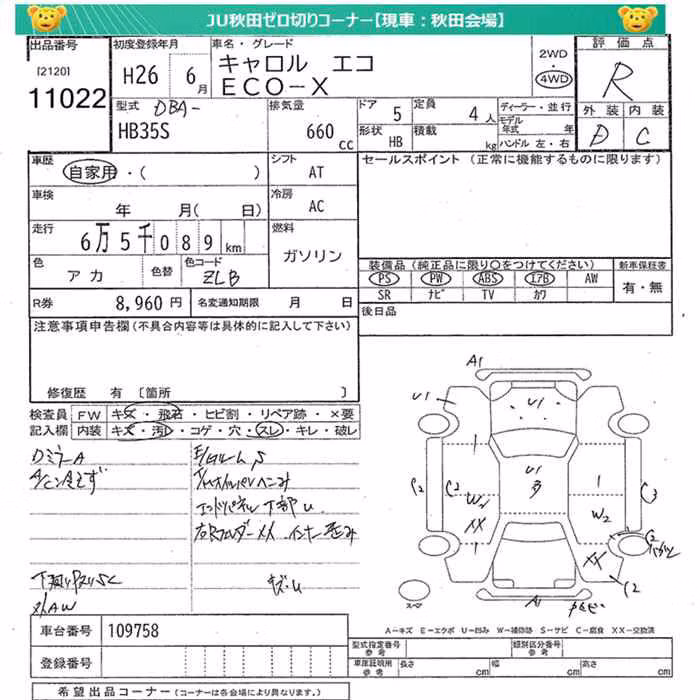 JU秋田ゼロ切りコーナー【現車：秋田会場】
出品番号
[2120]
11022
初度登録年月
H26 6月
車名・グレード
キャロル エコ
ECO-X
2WD
4WD
評価点
R
外装 内装
D C
型式 DBA-
HB35S
排気量
660 cc
ドア 5
形状 HB
定員 4人
積載 kg
ディーラー・並行
モデル年式 年
ハンドル 左・右
車歴 自家用・( )
シフト AT
車検 年 月( 日)
冷房 AC
走行 6万5千089km
燃料 ガソリン
色 アカ
色替
色コード ZLB
R券 8,960円
名変通知期限 月 日
セールスポイント (正常に機能するものに限ります)
装備品(純正品に限り○をつけてください)
PS PW ABS エアB AW
SR ナビ TV カワ
新車保証書
有・無
後日品
注意事項申告欄(不具合内容等は具体的に記入して下さい)
修復歴 有 〔箇所 〕
検査員記入欄
FW キズ・飛石・ヒビ割・リペア跡・×要
内装 キズ・汚れ・コゲ・穴・スレ・キレ・破レ
DミラーA
A/C冷えず
キズ・U
外AW
A1
U1
U1
U1
C2
C2
W2
XX
1
1
W2
C3
C2
XX
C2
A1
スペア
A-キズ E-エクボ U-凹み W-補修跡 S-サビ C-腐食 XX-交換済
車台番号 109758
登録番号
型式指定番号 参考
類別区分番号 参考
車庫証明用 参考
長さ cm 幅 cm 高さ cm
希望出品コーナー(コーナーは各会場により異なります。)